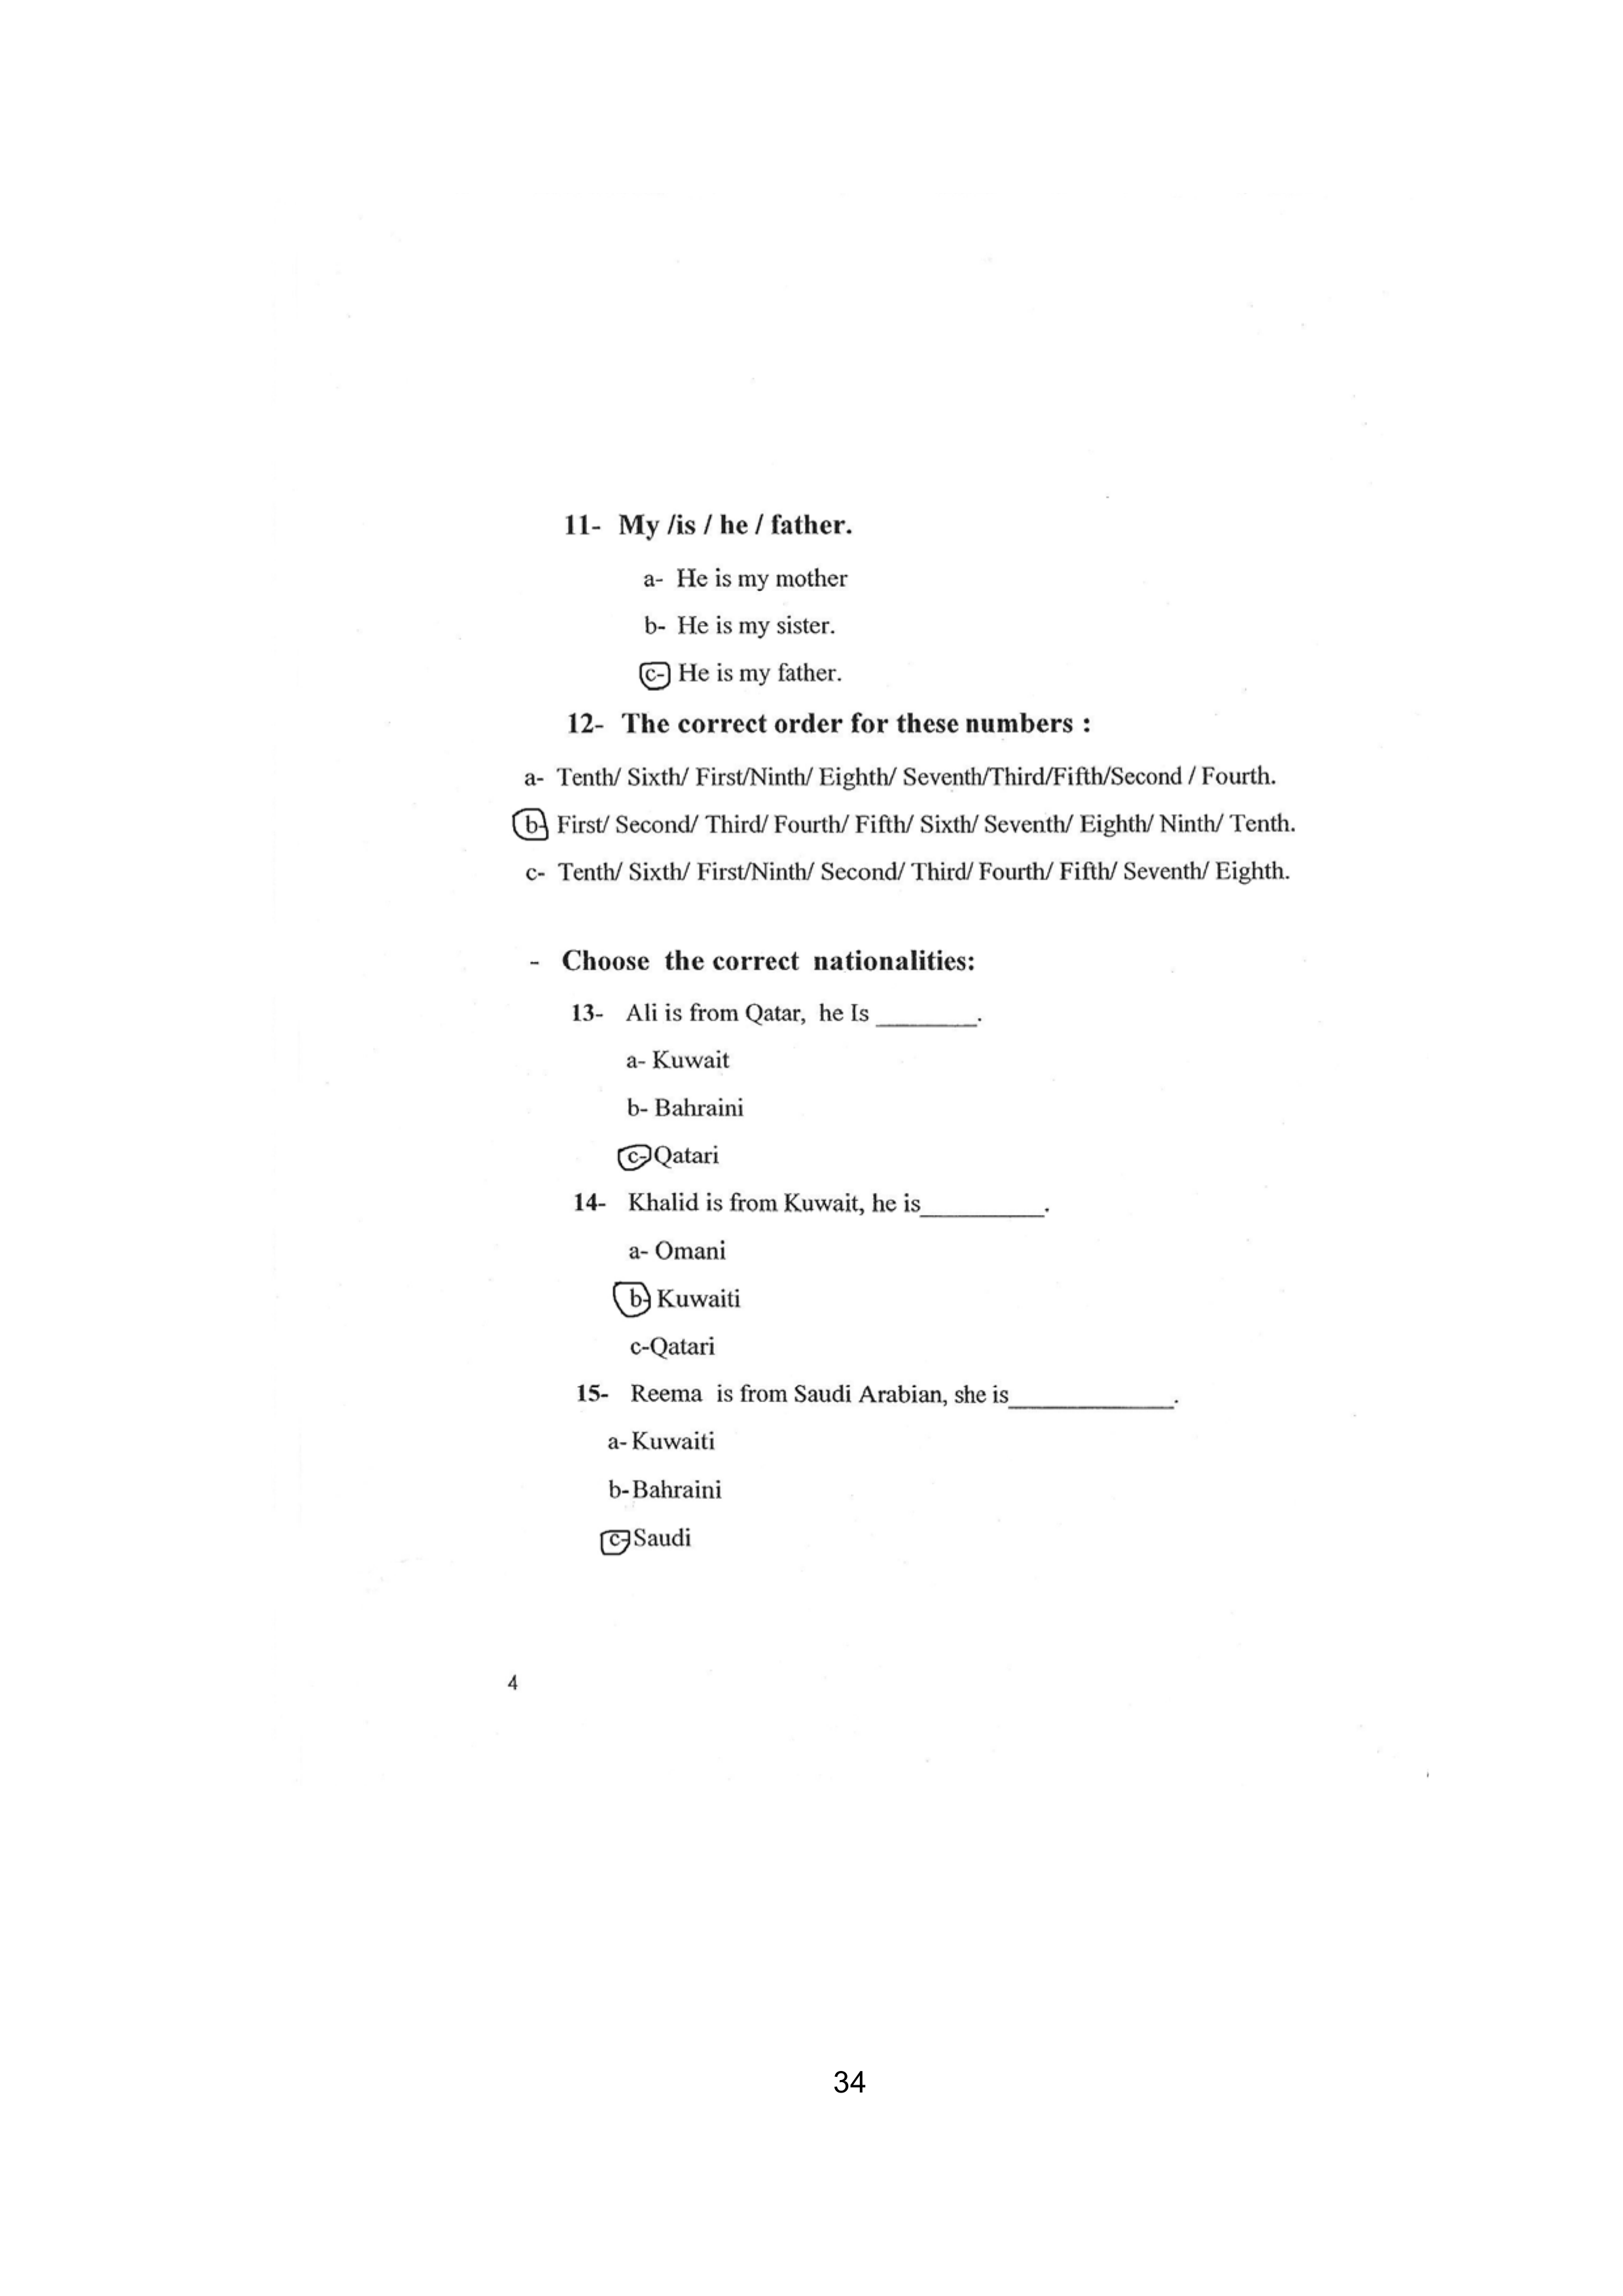 11- My /is / he / father.
a- He is my mother
b- He is my sister.
c- He is my father.
12- The correct order for these numbers :
a- Tenth/ Sixth/ First/Ninth/ Eighth/ Seventh/Third/Fifth/Second / Fourth.
b- First/ Second/ Third/ Fourth/ Fifth/ Sixth/ Seventh/ Eighth/ Ninth/ Tenth.
c- Tenth/ Sixth/ First/Ninth/ Second/ Third/ Fourth/ Fifth/ Seventh/ Eighth.
- Choose the correct nationalities:
13- Ali is from Qatar, he Is ________.
a- Kuwait
b- Bahraini
c-Qatari
14- Khalid is from Kuwait, he is__________.
a- Omani
b- Kuwaiti
c-Qatari
15- Reema is from Saudi Arabian, she is_____________.
a- Kuwaiti
b- Bahraini
c- Saudi
4
34